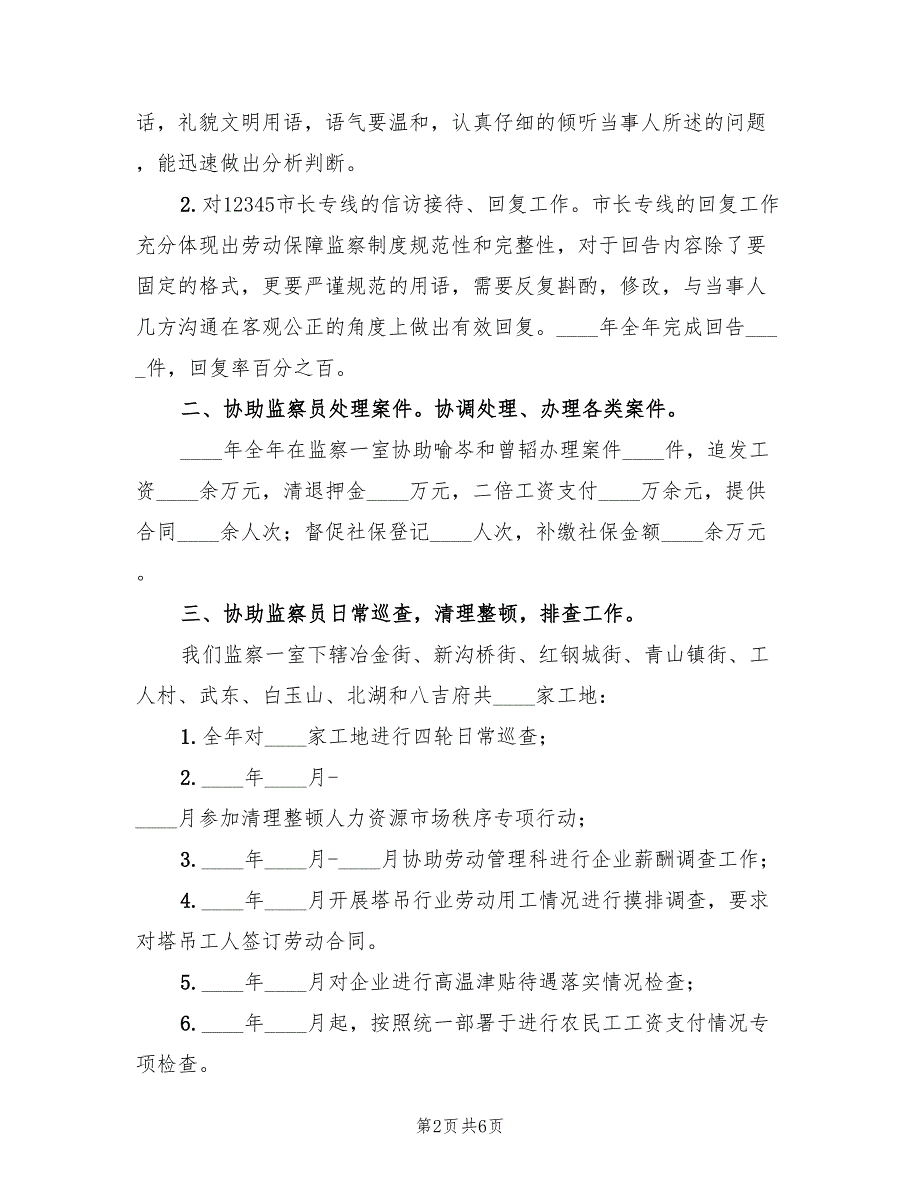 话，礼貌文明用语，语气要温和，认真仔细的倾听当事人所述的问题
，能迅速做出分析判断。
2. 对12345市长专线的信访接待、回复工作。市长专线的回复工作
充分体现出劳动保障监察制度规范性和完整性，对于回告内容除了要
固定的格式，更要严谨规范的用语，需要反复斟酌，修改，与当事人
几方沟通在客观公正的角度上做出有效回复。____年全年完成回告___
_件，回复率百分之百。
二、协助监察员处理案件。协调处理、办理各类案件。
____年全年在监察一室协助喻岑和曾韬办理案件____件，追发工
资____余万元，清退押金____万元，二倍工资支付____万余元，提供
合同____余人次；督促社保登记____人次，补缴社保金额____余万元
。
三、协助监察员日常巡查，清理整顿，排查工作。
我们监察一室下辖冶金街、新沟桥街、红钢城街、青山镇街、工
人村、武东、白玉山、北湖和八吉府共____家工地：
1. 全年对____家工地进行四轮日常巡查；
2. ____年____月-
____月参加清理整顿人力资源市场秩序专项行动；
3. ____年____月-____月协助劳动管理科进行企业薪酬调查工作；
4. ____年____月开展塔吊行业劳动用工情况进行摸排调查，要求
对塔吊工人签订劳动合同。
5. ____年____月对企业进行高温津贴待遇落实情况检查；
6. ____年____月起，按照统一部署于进行农民工工资支付情况专
项检查。
第2页 共6页